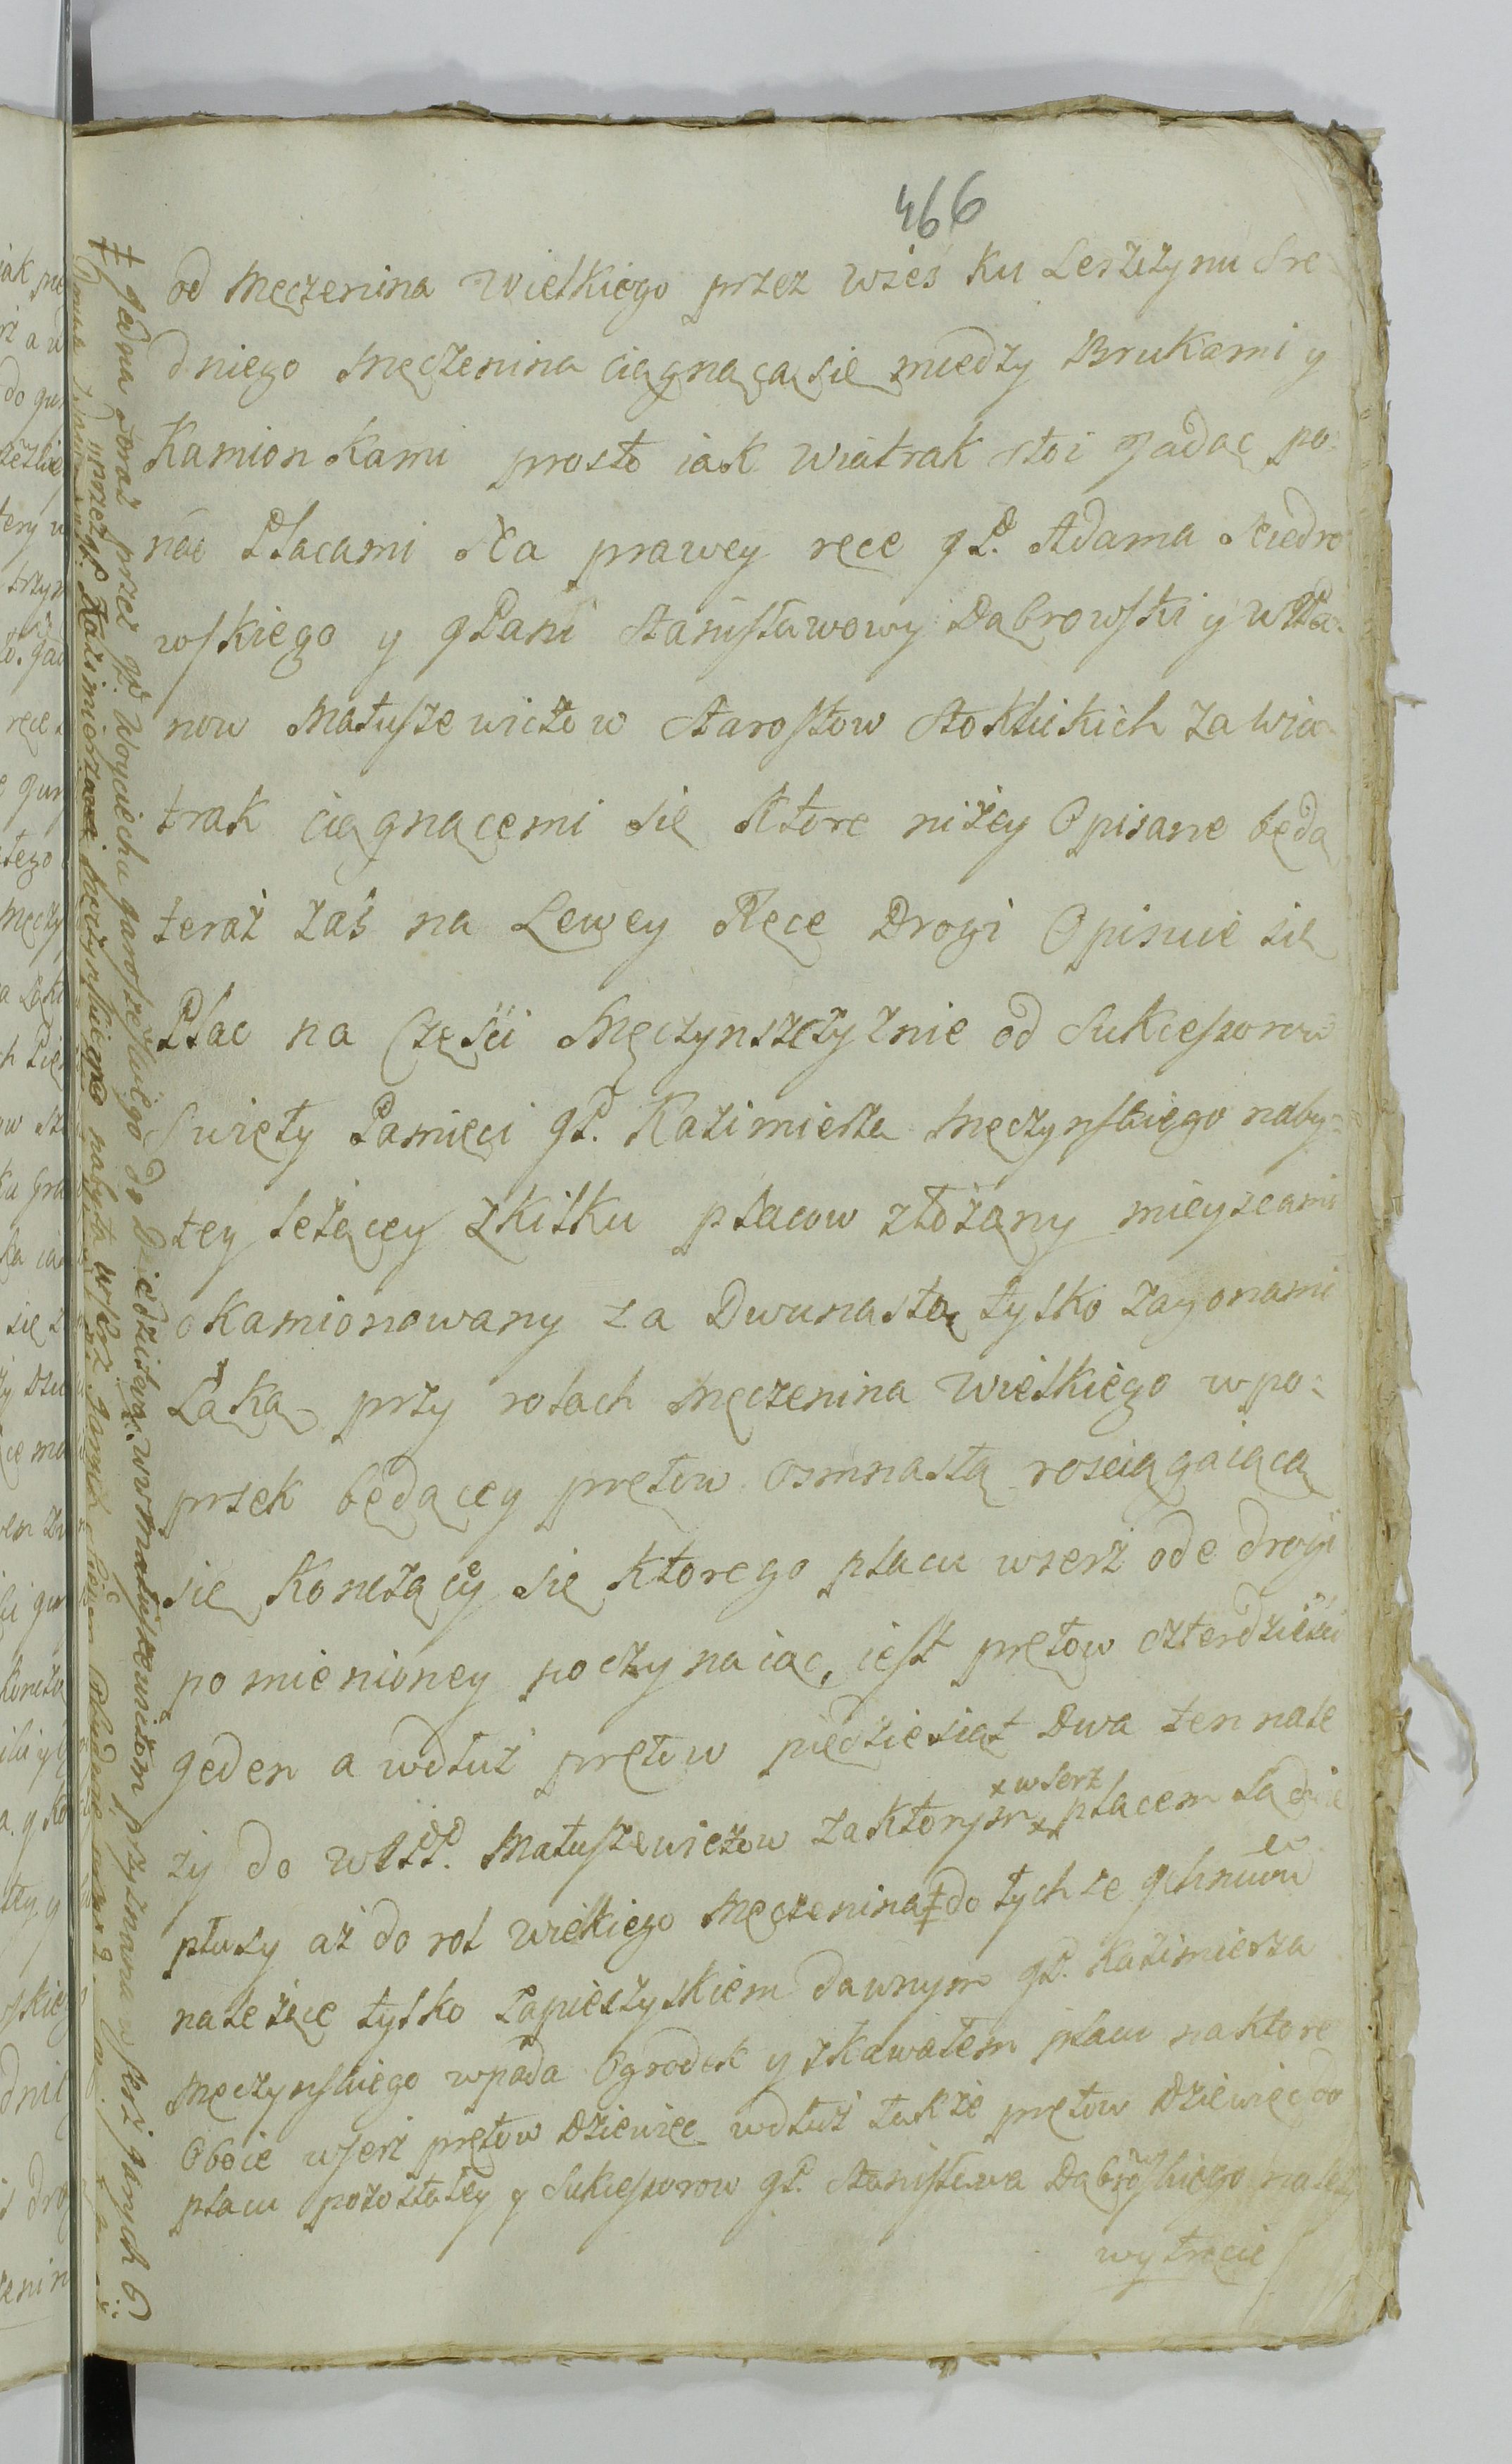 466
od Męczenina Wielkiego przez wieś ku Leszczynu Sre
dniego Męczenina ciągnącą się miedzy Brukami y
Kamionkami prosto iak wiatrak stoi Jadąc po:
nad Placami Na prawey ręce JP. Adama
wskiego y JPani Stanisławowy Dąbrowski y WPa:
now Matuszewiczow Starostow Stoklickich za wia
trak ciągnącemi się Ktore niżey Opisane będą
teraz zaś na Lewey Ręce Drogi Opisuie się
Plac na Części Męczynszczyznie od Sukcessorow
Swięty Pamięci JP. Kazimierza Męczynskiego naby:
tey leżącey z kilku placow złożany mieyscami
okamionowany za Dwunastą tylko zagonami
Łąką przy rolach Męczenina Wielkiego wpo:
przek będącey prętow osmnastą rosciągaiącą
się Konczący się ktorego placu wszerz ode drogi
pomienioney poczynaiąc, iest prętow czterdziesci
Jeden a wdłuż prętow piędziesiąt Dwa ten nale
ży do WJPP. Matuszewiczow za ktorym x placem są dwie
x wszerz
płusy aż do rol Wielkiego Męczenina ‡ do tychże Jchmciow
należące tylko Zapieczyskiem dawnym JP. Kazimierza
Męczynskiego wpada Ogrodek y z kawałem placu na ktore
Oboie wszerz prętow Dziewięc wdłuż także prętow Dziewięc do
placu pozostałey y Sukcessorow JP. Stanisława Dąbrowskiego należy
wytrącić
‡ Jedna zoraz przez JP. Woyciecha Jaroszewskiego do Dziedzictwa WW Matuszewiczom przyznana wszerz Jarych 6
przez JP. Kazimierza Męczynskiego nabyta wszerz Jarych